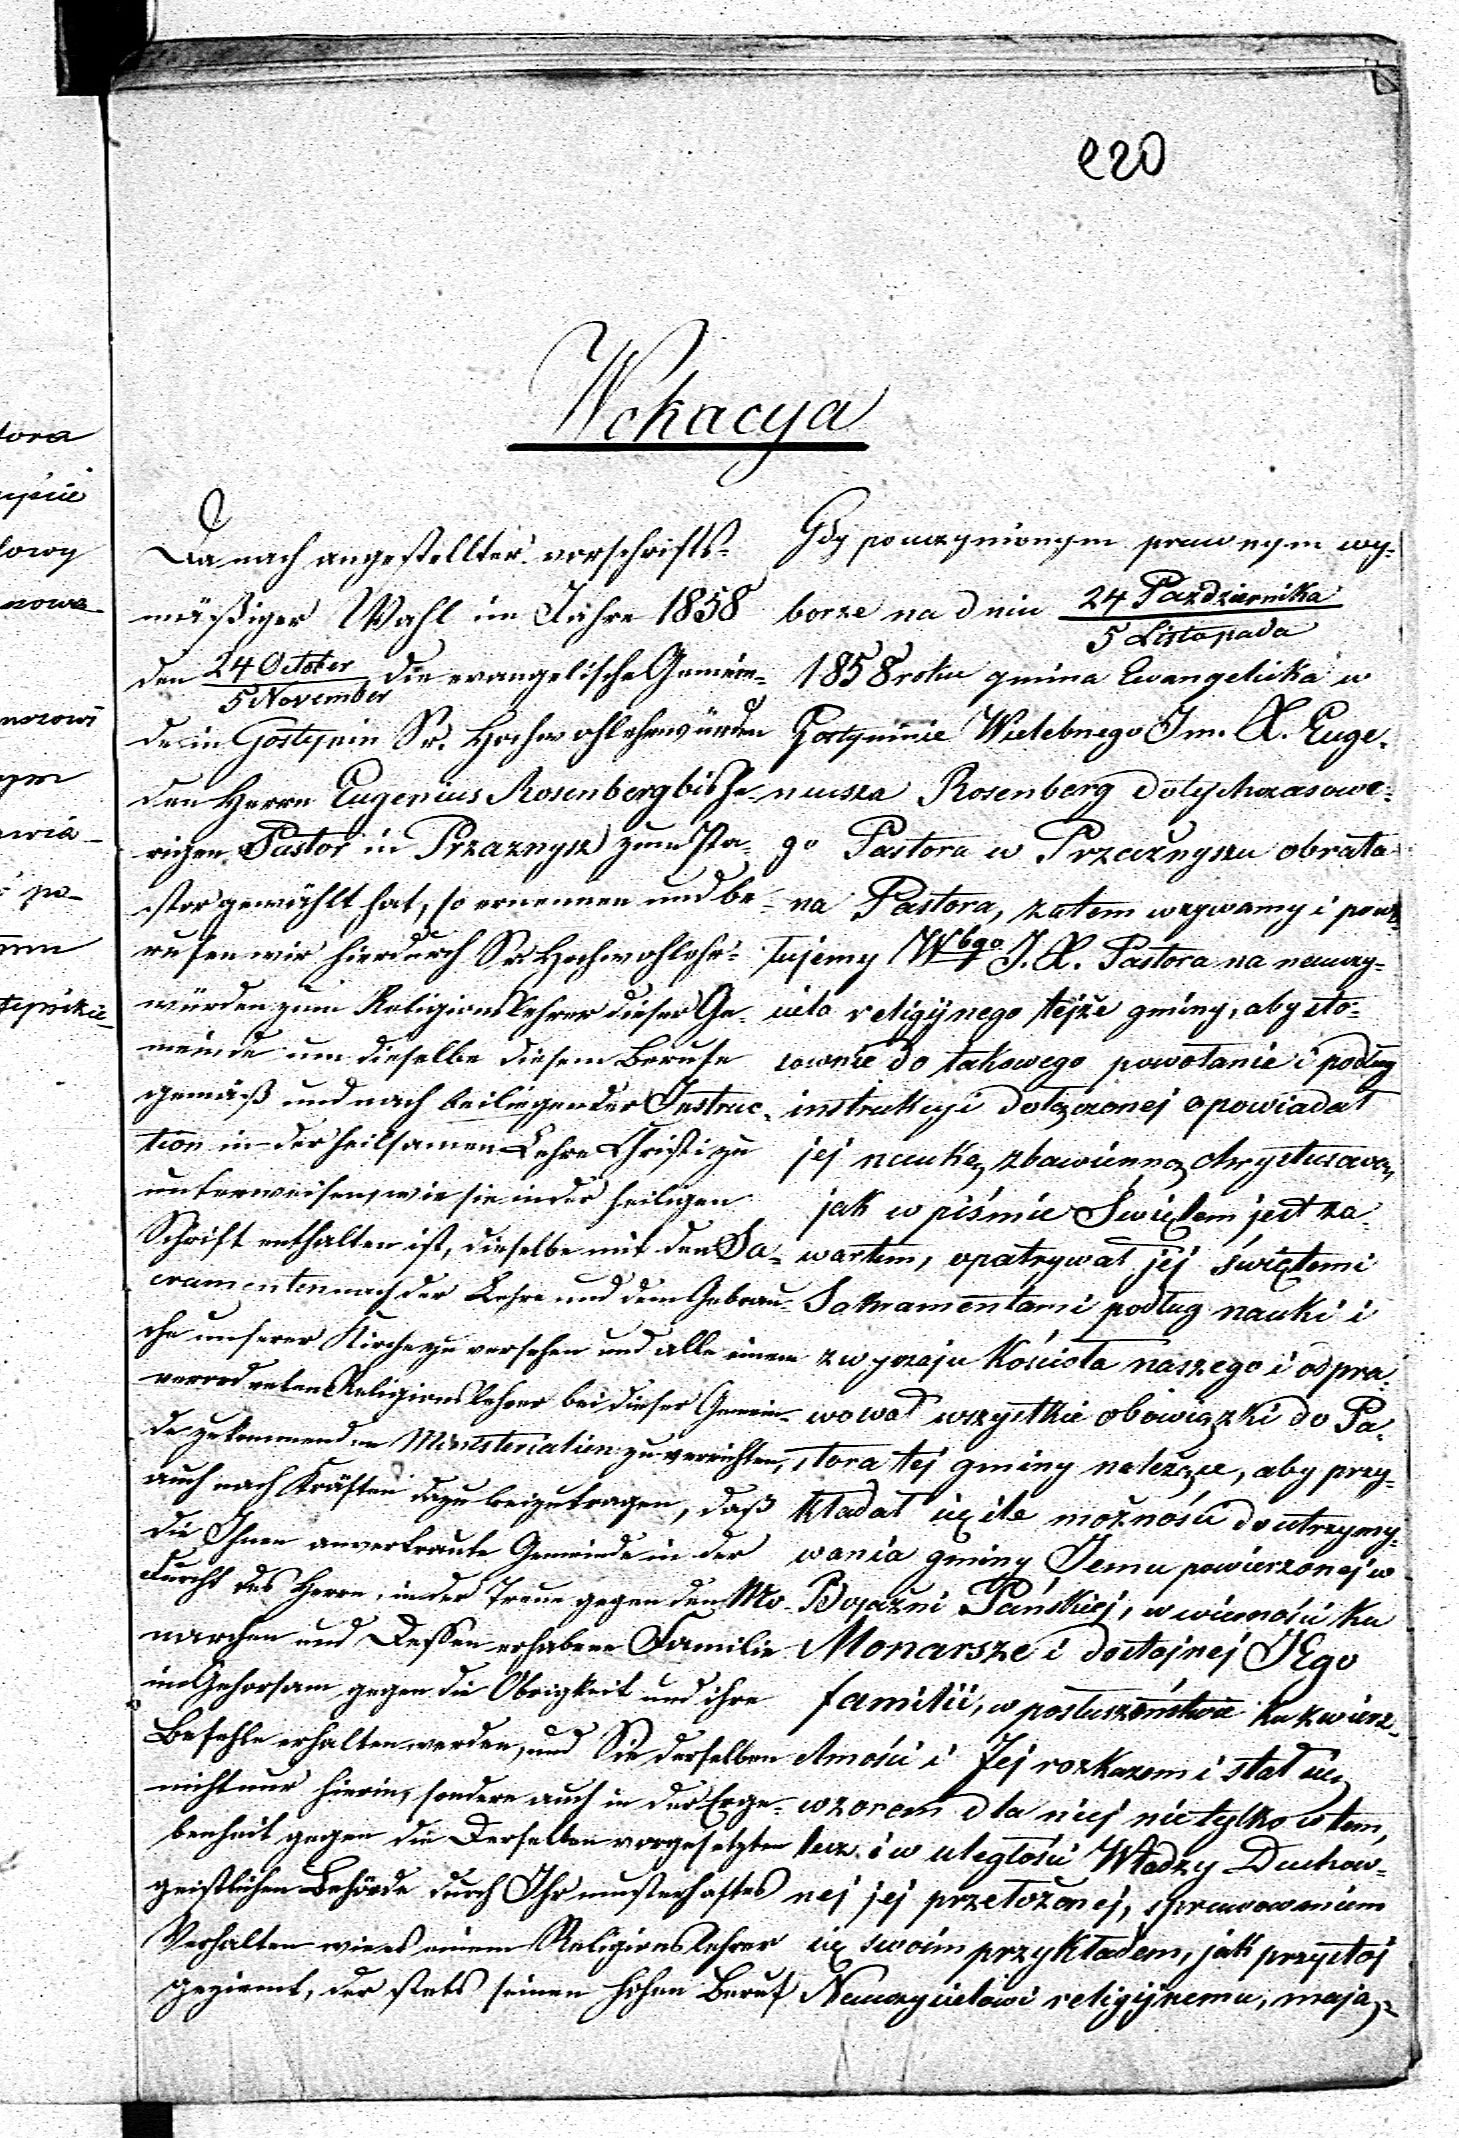 220
Wokacya
Da nach angestellter vorschrifts-
mäßiger Wahl im Jahre 1858
den 24 October / 5 November die evangelische Gemein-
de in Gostynin Sr. Hochwohlehrwürden
den Herrn Eugenius Rosenberg bishe-
rigen Pastor in Przaznysz zum Pa-
stor gewählt hat, so ernennen und be-
rufen wir hierdurch Se Hochwohlehr-
würden zum Religionslehrer dieser Ge-
meinde um dieselbe diesem Berufe
gemäß und nach beiliegender Instruc-
tion in der heilsamen Lehre Christi zu
unterweisen, wie sie in der heiligen
Schrift enthalten ist, dieselbe mit den Sa-
cramenten nach der Lehre und dem Gebrau-
che unserer Kirche zu versehen und alle einem
verordneten Religionslehrer bei dieser Gemein-
de zukommenden Ministerialien zu verrichten,
auch nach Kräften dazu beizutragen, daß
die Ihnen anvertraute Gemeinde in der
Furcht des Herrn, in der Treue gegen den Mo-
narchen und Dessen erhabene Familie
im Gehorsam gegen die Obrigkeit und ihre
Befehle erhalten werden, und Sie derselben
nicht nur hierin, sondern auch in der Erge-
benheit gegen die Derselben vorgesetzten
geistlichen Behörde durch Ihr musterhaftes
Verhalten wie es einem Religionslehrer
geziemt, der stets seinen hohen Beruf
Gdy po uczynionym prawnym wy-
borze na dniu 24 Października / 5 Listopada
1858 roku gmina Ewangelicka w
Gostyninie Wielebnego Jm. X. Euge-
niusza Rosenberg dotychczasowe-
go Pastora w Przasnyszu obrała
na Pastora, zatem wzywamy i powo-
łujemy Wbgo J. X. Pastora na nauczy-
ciela religijnego tejże gminy, aby sto-
sownie do takowego powołania i podług
instrukcyi dołączonej opowiadał
jej naukę zbawienną chrystusową,
jak w piśmie Świętem jest za-
wartem, opatrywał jej świętemi
Sakramentami podług nauki i
zwyczaju Kościoła naszego i odpra-
wował wszystkie obowiązki do Pa-
stora tej gminy należące, aby przy-
kładał się ile możności do utrzymy-
wania gminy Jemu powierzonej w
Bojaźni Pańskiej, w wierności ku
Monarsze i dostojnej JEgo
familii, w posłuszeństwie ku zwierz-
chności i Jej rozkazom i stał się
wzorem dla niej nie tylko w tem,
lecz i w uległości Władzy Duchow-
nej jej przełożonej, sprawowaniem
się swoim przykładem, jak przystoj
Nauczycielowi religijnemu, mają-